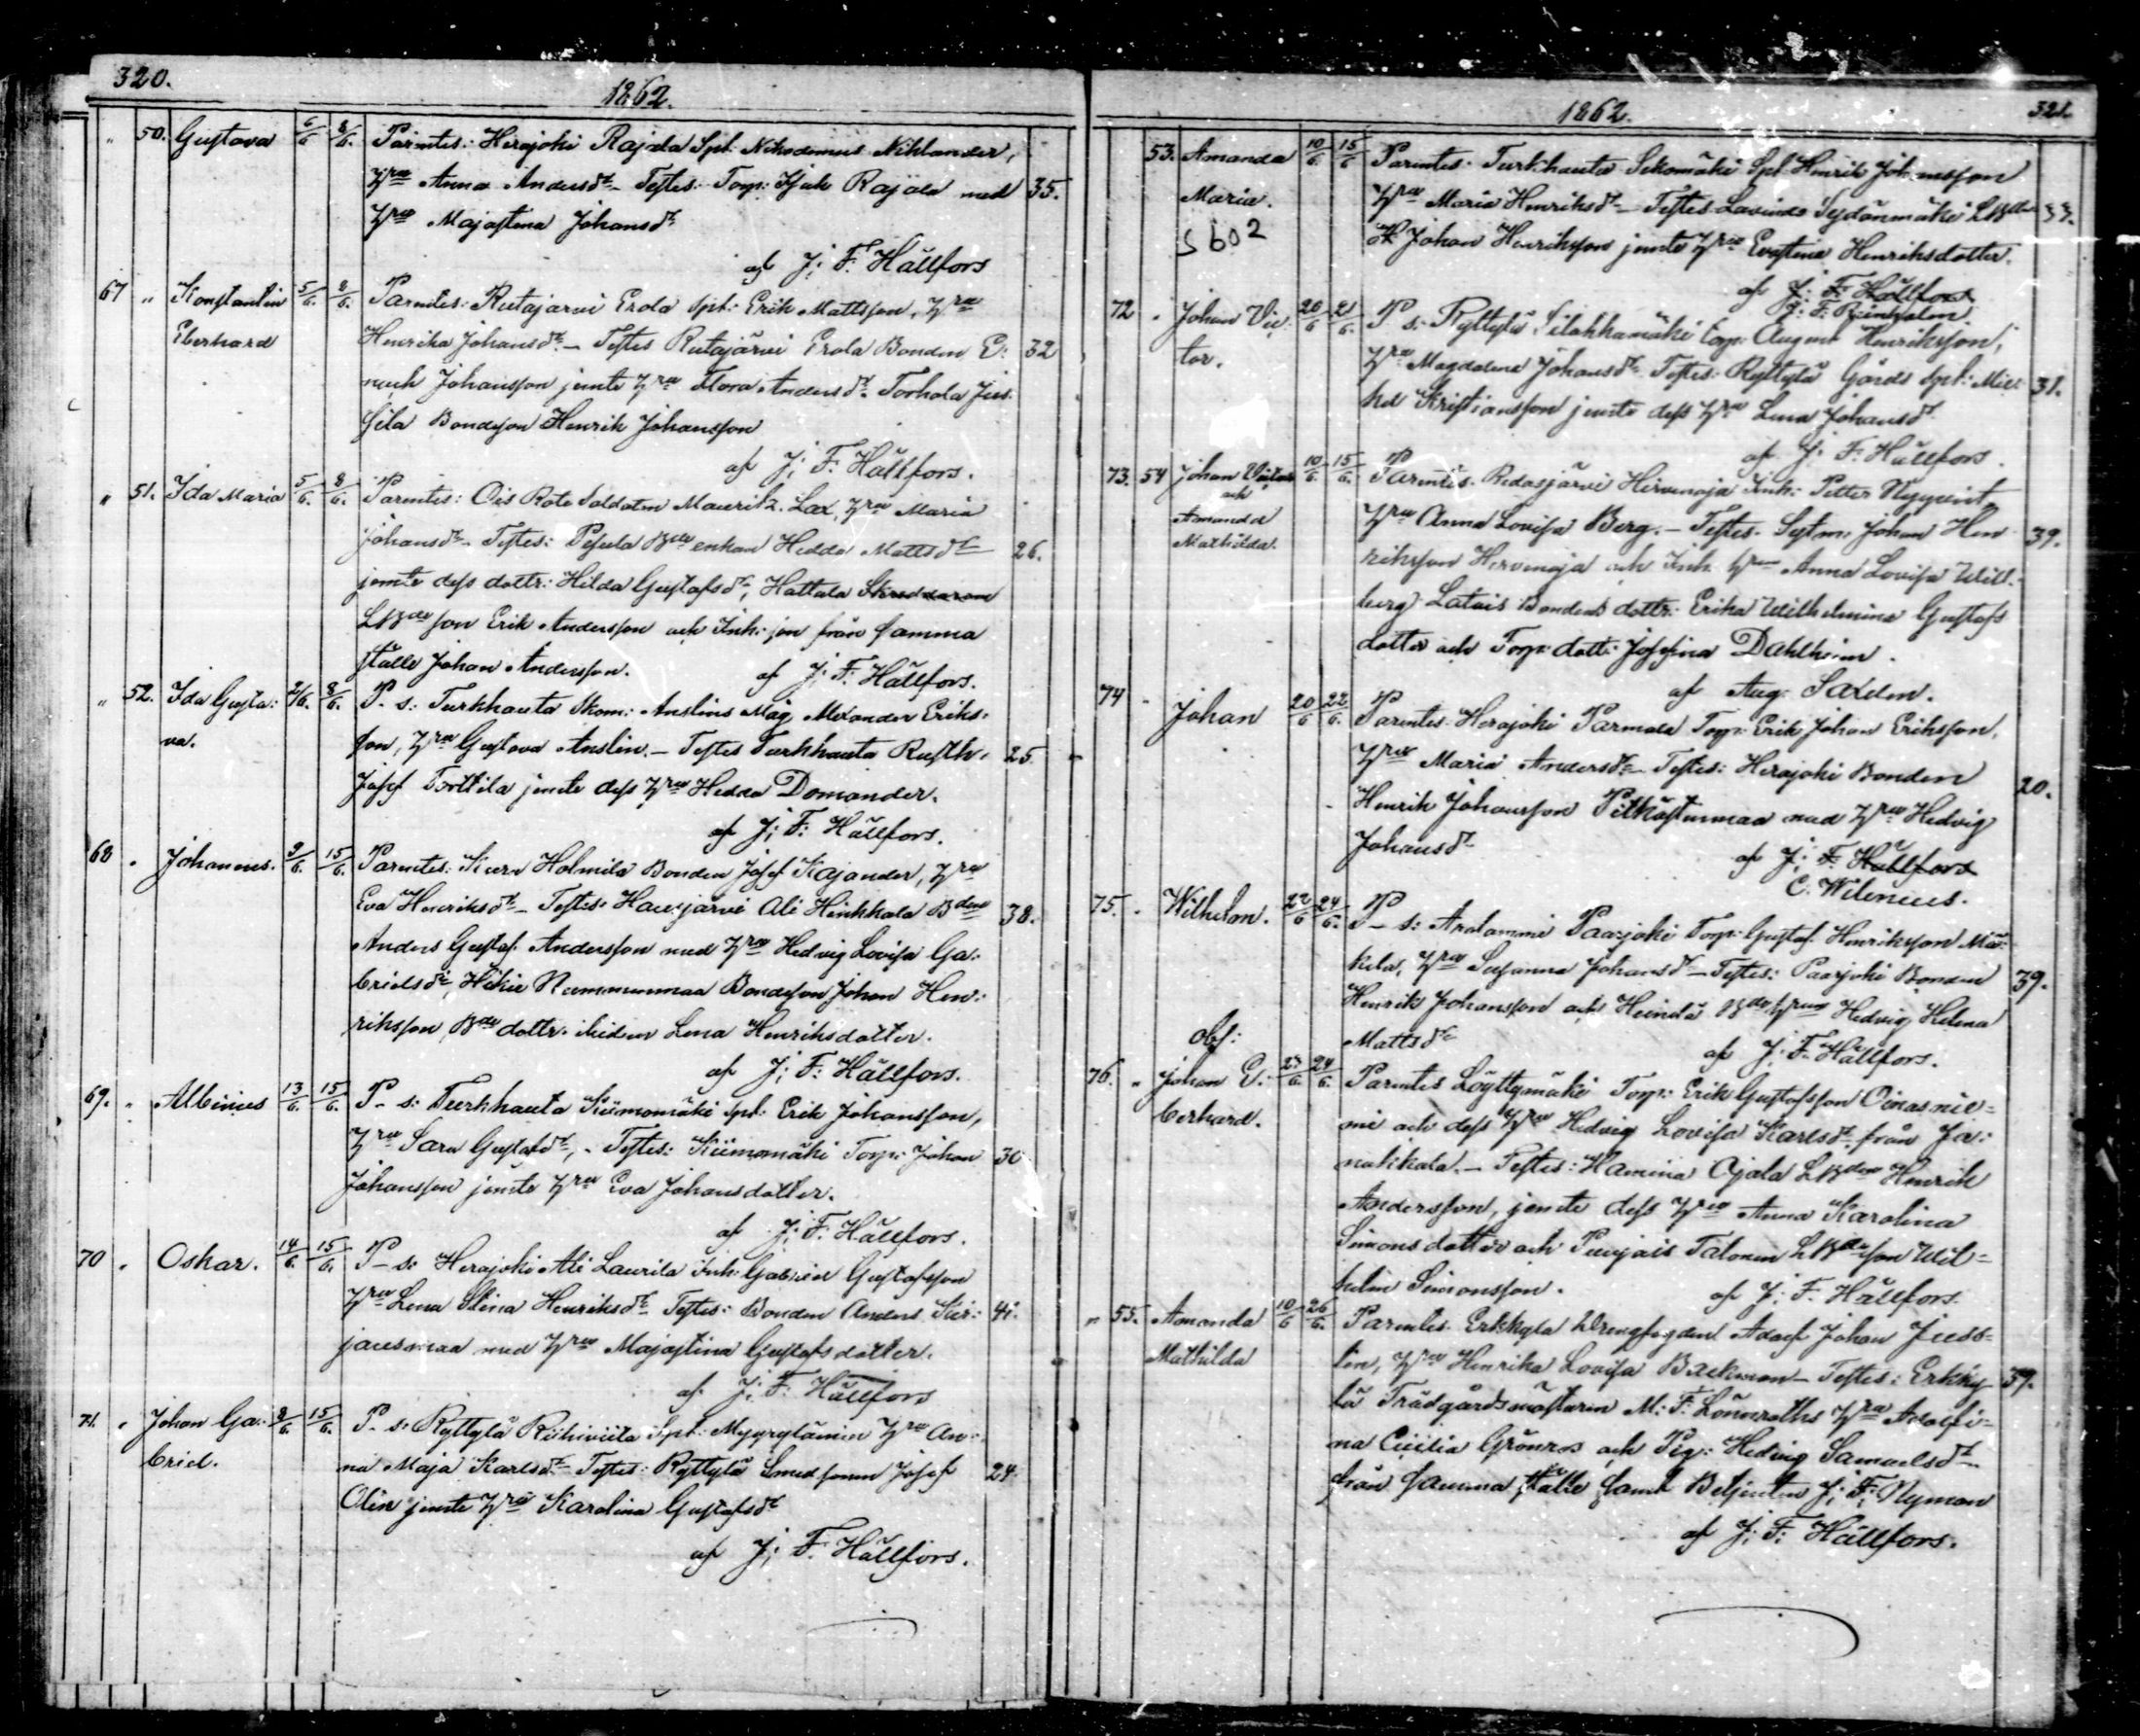 320.
1862.
" 50. Gustava 6/6 8/6. Parentes: Herajoki Rajala Spl: Nikodemus Niklander,
hru Anna Andersdr - Testes: Torp: Isak Rajala med 35.
hru Majastina Johansdr
af J: F: Hällfors
67 " Konstantin 5/6. 8/6. Parentes: Rutajärvi Erola Spl: Erik Mattsson, hru
Eberhard Henrika Johansdr. - Testes Rutajärvi Erola Bonden E: 32
nuch Johansson jemte hru Flora Andersdr. Torhola Jus-
sila Bondeson Henrik Johansson
af J: F: Hällfors.
" 51. Ida Maria 5/6. 8/6. Parentes: Ois Rote Soldaten Mauritz Lax, hru Maria
Johansdr - Testes: Pesula Bdeenkan Hedda Mattsdr 26.
jemte dess dottr: Hilda Gustafsdr, Hattula Skreddaren
LBdeson Erik Andersson och Inh: son från samma
ställe Johan Andersson. af J: F: Hällfors.
" 52. Ida Gusta: 2/6. 8/6. P-s: Turkhauta Skom: Anslins Måg Alexander Eriks-
va. son, hru Gustava Anslin. - Testes Turkhauta Rusth: 25.
Josef Torttila jemte dess hru Hedda Domander.
af J: F: Hällfors.
68 " Johannes. 9/6. 15/6. Parentes: Kara Holmila Bonden Josef Kajander, hru
Eva Henriksdr - Testes: Hausjärvi Ali Hinkkala Bden 38.
Anders Gustaf Andersson med hru Hedvig Lovisa Ga:
brielsdr, Hikiä Nummenmaa Bondeson Johan Hen:
riksson Bde dottr. ibidem Lena Henriksdotter.
af J: F: Hällfors.
69. " Albinus 13/6. 15/6. P-s: Turkhauta Kiimomäki Spl: Erik Johansson,
hru Sara Gustafsdr, - Testes: Kiimomäki Torp: Johan 30
Johansson jemte hru Eva Johansdotter.
af J: F: Hällfors.
70 " Oskar. 14/6. 15/6. P-s: Herajoki Ali Laurila Inh: Gabriel Gustafsson
hru Lena Stina Henriksdr Testes: Bonden Anders Kir: 41.
jausmaa med hru Majastina Gustafsdotter.
af J: F: Hällfors
71. " Johan Ga: 9/6. 15/6. P-s: Ryttylä Riihiviita Spl: Myyryläinen hru An:
briel. na Maja Karlsdr - Testes: Ryttylä Smedsonen Josef 24.
Olin jemte hru Karolina Gustafsdr
af J: F: Hällfors.
1862.
321.
53. Amanda 10/6 15/6 Parentes: Turkhauta Sekomäki Spl: Henrik Johansson
Maria. hru Maria Henriksdr - Testes Lavinto Sydänmäki LBden 33.
S 602 Johan Henriksson jemte hru Evastina Henriksdotter.
af J: F: Hällfors
J: F: Reinholm.
72 " Johan Vic: 20/6 21/6. P-s: Ryttylä Silakkamäki Torp: August Henriksson,
tor. hru Magdalena Johansdr Testes: Ryttylä Gårds Spl: Mic: 31.
hel Kristiansson jemte dess hru Lena Johansdr
af J: F: Hällfors.
73. 54 Johan Viktor 10/6. 15/6. Parentes: Redasjärvi Hirvenoja Inh: Petter Nyqvist
och hru Anna Lovisa Berg. - Testes: Sytm: Johan Hen 39.
Amanda riksson Hirvenoja och Inh: hru Anna Lovisa Will-
Mathilda. berg Latuis Bondens dottr: Erika Wilhelmina Gustafs
dotter och Torp: dottr: Josefina Dahlheim.
af Aug: Saxelin.
74 " Johan 20/6 22/6. Parentes: Herajoki Parmala Torp: Erik Johan Eriksson,
hru Maria Andersdr - Testes: Herajoki Bonden 20.
Henrik Johansson Pitkästenmaa med hru Hedvig
Johansdr af J: F: Hällfors
C. Wilenius.
75. " Wilhelm. 22/6 24/6. P-s: Aralammi Paarjoki Torp: Gustaf Henriksson Mä-
kelä, hru Susanna Johansdr - Testes: Paarjoki Bonden 39.
Henrik Johansson och Heinelä Bdehrun Hedvig Helena
Obs: Mattsdr af J: F: Hällfors.
76. " Johan E: 23/6. 24/6. Parentes Löyttymäki Torp: Erik Gustafsson Oinasnie-
berhard. mi och dess hru Hedvig Lovisa Karlsdr från Ja:
nakkala. - Testes: Hamina Ojala LBden Henrik
Andersson, jemte dess hru Anna Karolina
Simonsdotter och Puujais Talonen LBdeson Wil-
helm Simonsson. af J: F: Hällfors.
" 55. Amanda 10/6 26/6. Parentes: Erkkylä Drengfogden Adolf Johan Juse-
Mathilda lin, hru Henrika Lovisa Backman - Testes: Erkky 39.
lä Trädgårdsmästaren M: F: Lönnroths hru Adolfi-
na Cecilia Grönros och Pig: Hedvig Samuelsdr
från samma ställe samt Betjenten J: F: Nyman
af J: F: Hällfors.